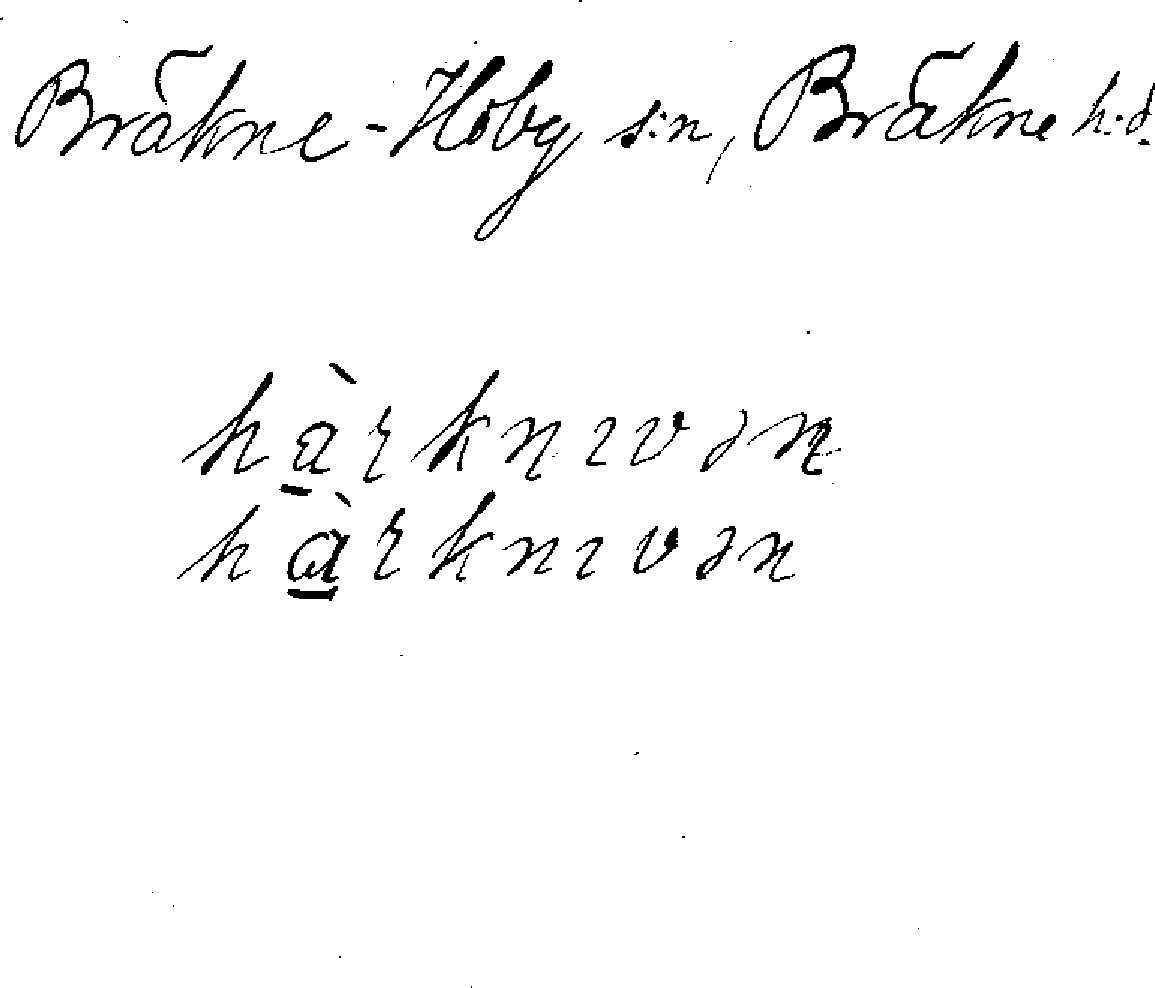 Bräkne-Hoby s:n, Bräkne h.d.
hà̱rknɪvən
hà̱rknɪvən